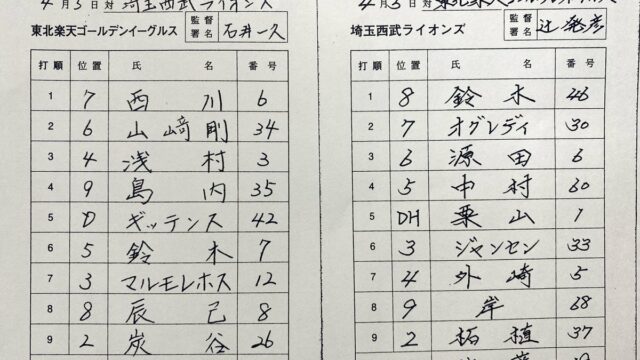 4月3日対 埼玉西武ライオンズ
東北楽天ゴールデンイーグルス 監督署名 石井一久
打順 位置 氏 名 番号
1 7 西川 6
2 6 山﨑剛 34
3 4 浅村 3
4 9 島内 35
5 D ギッテンス 42
6 5 鈴木 7
7 3 マルモレホス 12
8 8 辰己 8
9 2 炭谷 26
4月3日対
埼玉西武ライオンズ 監督署名 辻発彦
打順 位置 氏 名 番号
1 8 鈴木 46
2 7 オグレディ 30
3 6 源田 6
4 5 中村 60
5 DH 栗山 1
6 3 ジャンセン 33
7 4 外崎 5
8 9 岸 68
9 2 柘植 37